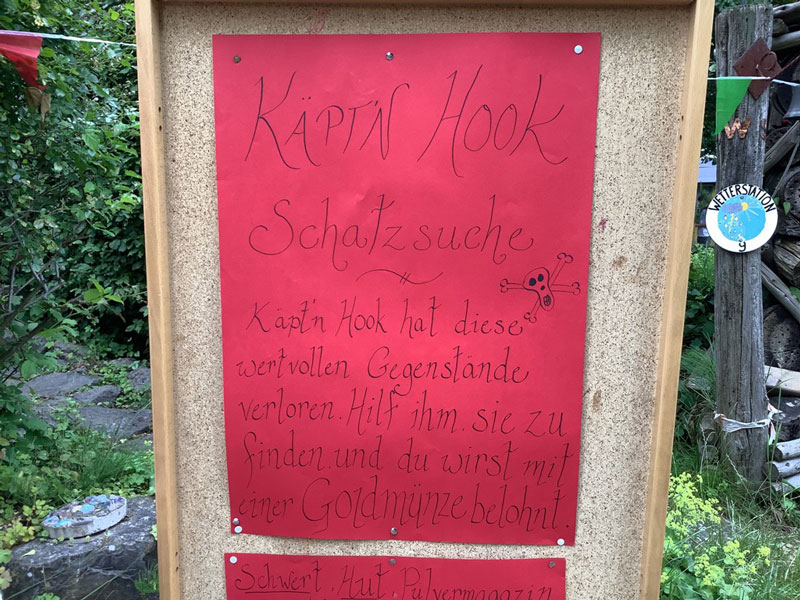 KÄPT'N HOOK
Schatzsuche
Käpt'n Hook hat diese
wertvollen Gegenstände
verloren. Hilf ihm. sie zu
finden. und du wirst mit
einer Goldmünze belohnt.
Schwert, Hut, Pulvermagazin
WETTERSTATION
9